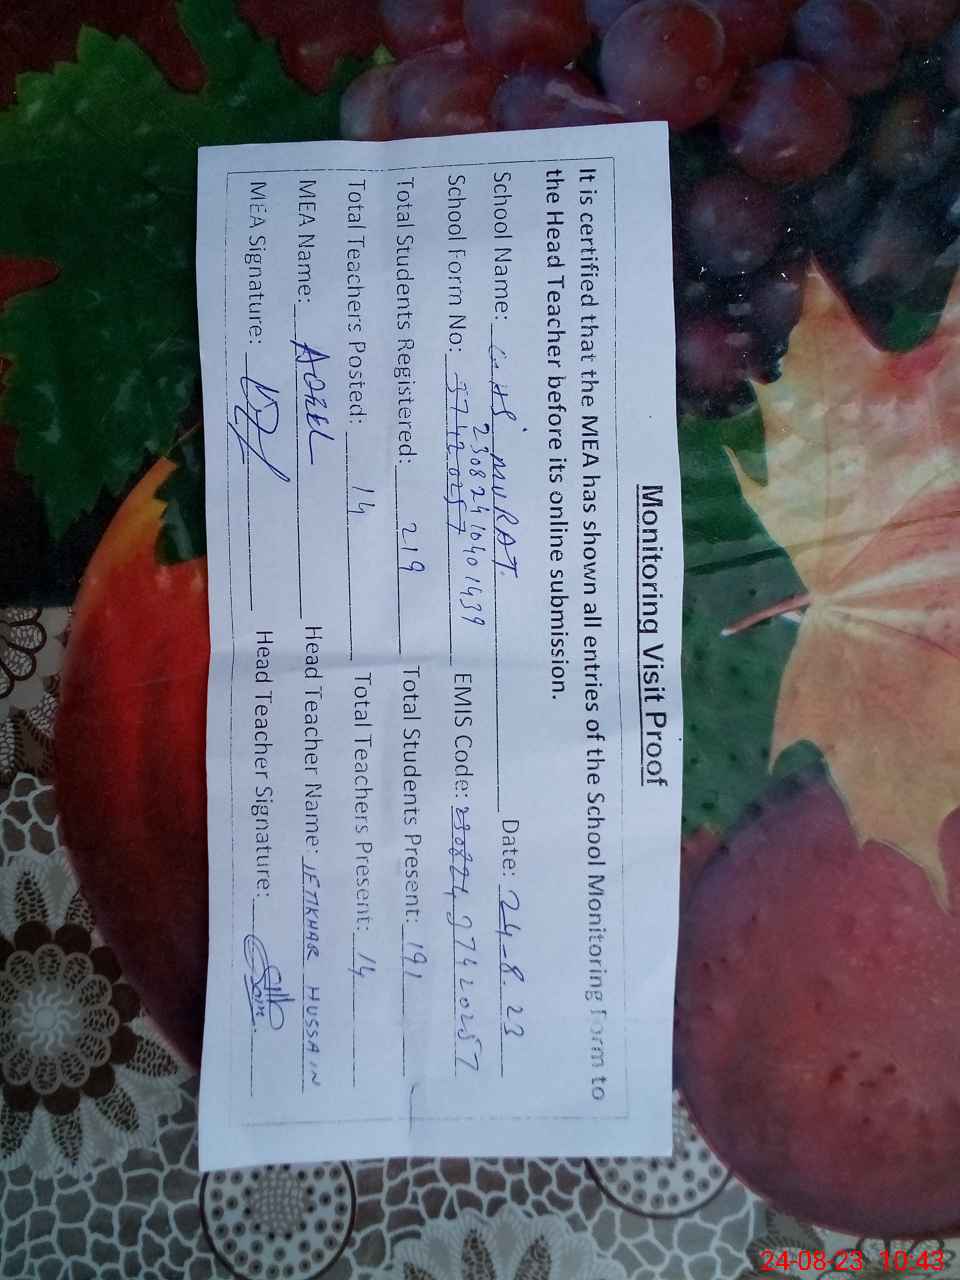 Monitoring Visit Proof
It is certified that the MEA has shown all entries of the School Monitoring Form to
the Head Teacher before its online submission.
School Name: G.HS MURAT. Date: 24-8.23
23082410401439
School Form No: 37420257 EMIS Code: 230824 37420257
Total Students Registered: 219 Total Students Present: 191
Total Teachers Posted: 14 Total Teachers Present: 14
MEA Name: Head Teacher Name: IFTIKHAR HUSSAIN
MEA Signature: Head Teacher Signature:
24-08-23 10:43